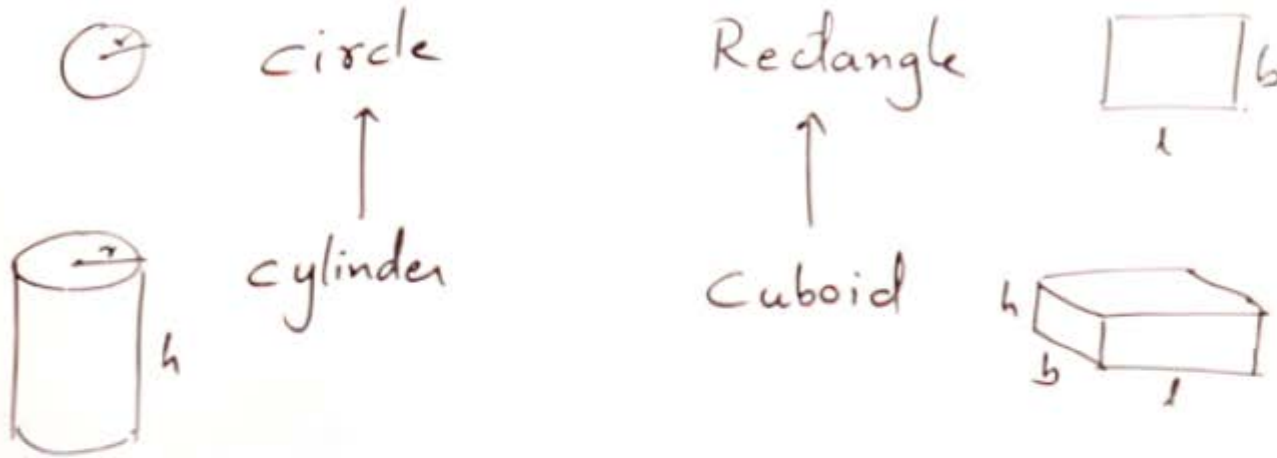 r circle Rectangle b
l
r cylinder Cuboid h
h b l